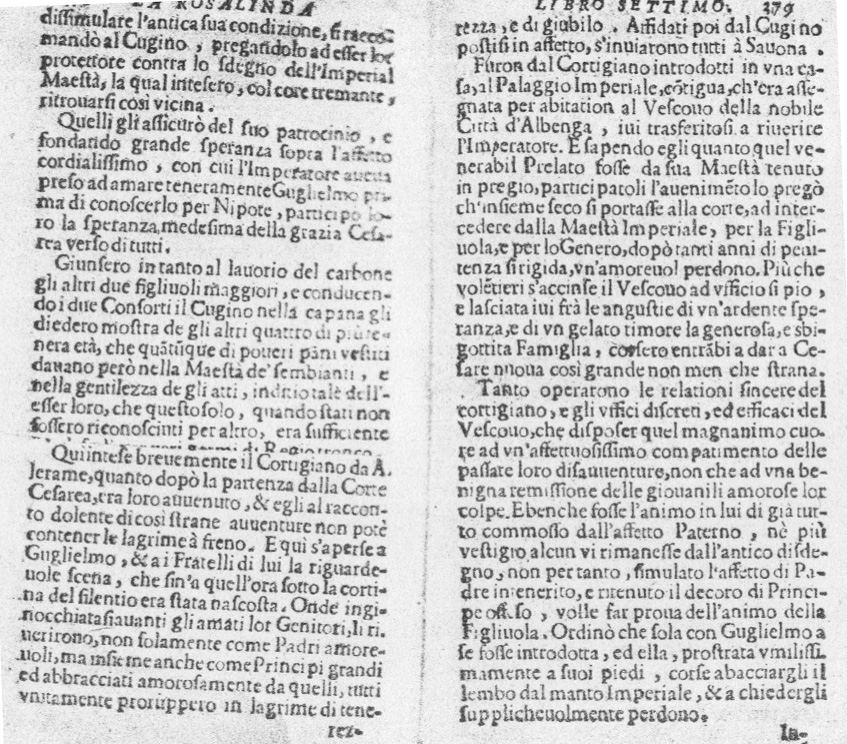 LA ROSALINDA
dissimulare l'antica sua condizione, si racco-
mandò al Cugino, pregandolo ad esser lor
protettore contro lo sdegno dell'Imperial
Maestà, la qual intesero, col core tremante,
ritrouarsi così vicina.
Quelli gli assicurò del suo patrocinio, e
fondando grande speranza sopra l'affetto
cordialissimo, con cui l'Imperatore aueua
preso ad amare teneramente Guglielmo pri-
ma di conoscerlo per Nipote, participò lo-
ro la speranza medesima della grazia Cesa-
rea verso di tutti.
Giunsero in tanto al lauorio del carbone
gli altri due figliuoli maggiori, e conducen-
do i due Consorti il Cugino nella capana gli
diedero mostra de gli altri quattro di più te-
nera età, che quātūque di poueri pāni vestiti
dauano però nella Maestà de' sembianti, e
nella gentilezza de gli atti, inditio tale dell'-
esser loro, che questo solo, quando stati non
fossero riconosciuti per altro, era sufficiente
Qui intese breuemente il Cortigiano da A-
lerame, quanto dopò la partenza dalla Corte
Cesarea, era loro auuenuto, & egli al raccon-
to dolente di così strane auuenture non potè
contener le lagrime à freno. E qui s'aperse a
Guglielmo, & a i Fratelli di lui la riguarde-
uole scena, che sin'a quell'ora sotto la corti-
na del silentio era stata nascosta. Onde ingi-
nocchiatisi auanti gli amati lor Genitori, li ri-
uerirono, non solamente come Padri amore-
uoli, ma insieme anche come Principi grandi
ed abbracciati amorosamente da quelli, tutti
vnitamente proruppero in lagrime di tene-
rez-
LIBRO SETTIMO. 279
rezza, e di giubilo. Affidati poi dal Cugino
postisi in assetto, s'inuiarono tutti à Sauona.
Furon dal Cortigiano introdotti in vna ca-
sa, al Palaggio Imperiale, cōtigua, ch'era asse-
gnata per abitation al Vescouo della nobile
Città d'Albenga, iui trasferitosi a riuerire
l'Imperatore. E sapendo egli quanto quel ve-
nerabil Prelato fosse da sua Maestà tenuto
in pregio, participatoli l'auenimēto lo pregò
ch'insieme seco si portasse alla corte, ad inter-
cedere dalla Maestà Imperiale, per la Figli-
uola, e per lo Genero, dopò tanti anni di peni-
tenza sì rigida, vn'amoreuol perdono. Più che
volētieri s'accinse il Vescouo ad vfficio sì pio,
e lasciata iui frà le angustie di vn'ardente spe-
ranza, e di vn gelato timore la generosa, e sbi-
gottita Famiglia, corsero entrābi a dar a Ce-
sare nuoua così grande non men che strana.
Tanto operarono le relationi sincere del
cortigiano, e gli vffici discreti, ed efficaci del
Vescouo, che disposer quel magnanimo cuo-
re ad vn'affettuosissimo compatimento delle
passate loro disauuenture, non che ad vna be-
nigna remissione delle giouanili amorose lor
colpe. E benche fosse l'animo in lui di già tut-
to commosso dall'affetto Paterno, nè più
vestigio alcun vi rimanesse dall'antico disde-
gno, non per tanto, simulato l'affetto di Pa-
dre intenerito, e ritenuto il decoro di Princi-
pe offeso, volle far proua dell'animo della
Figliuola. Ordinò che sola con Guglielmo a
se fosse introdotta, ed ella, prostrata vmilissi-
mamente a suoi piedi, corse a bacciargli il
lembo dal manto Imperiale, & a chiedergli
supplicheuolmente perdono.
In-